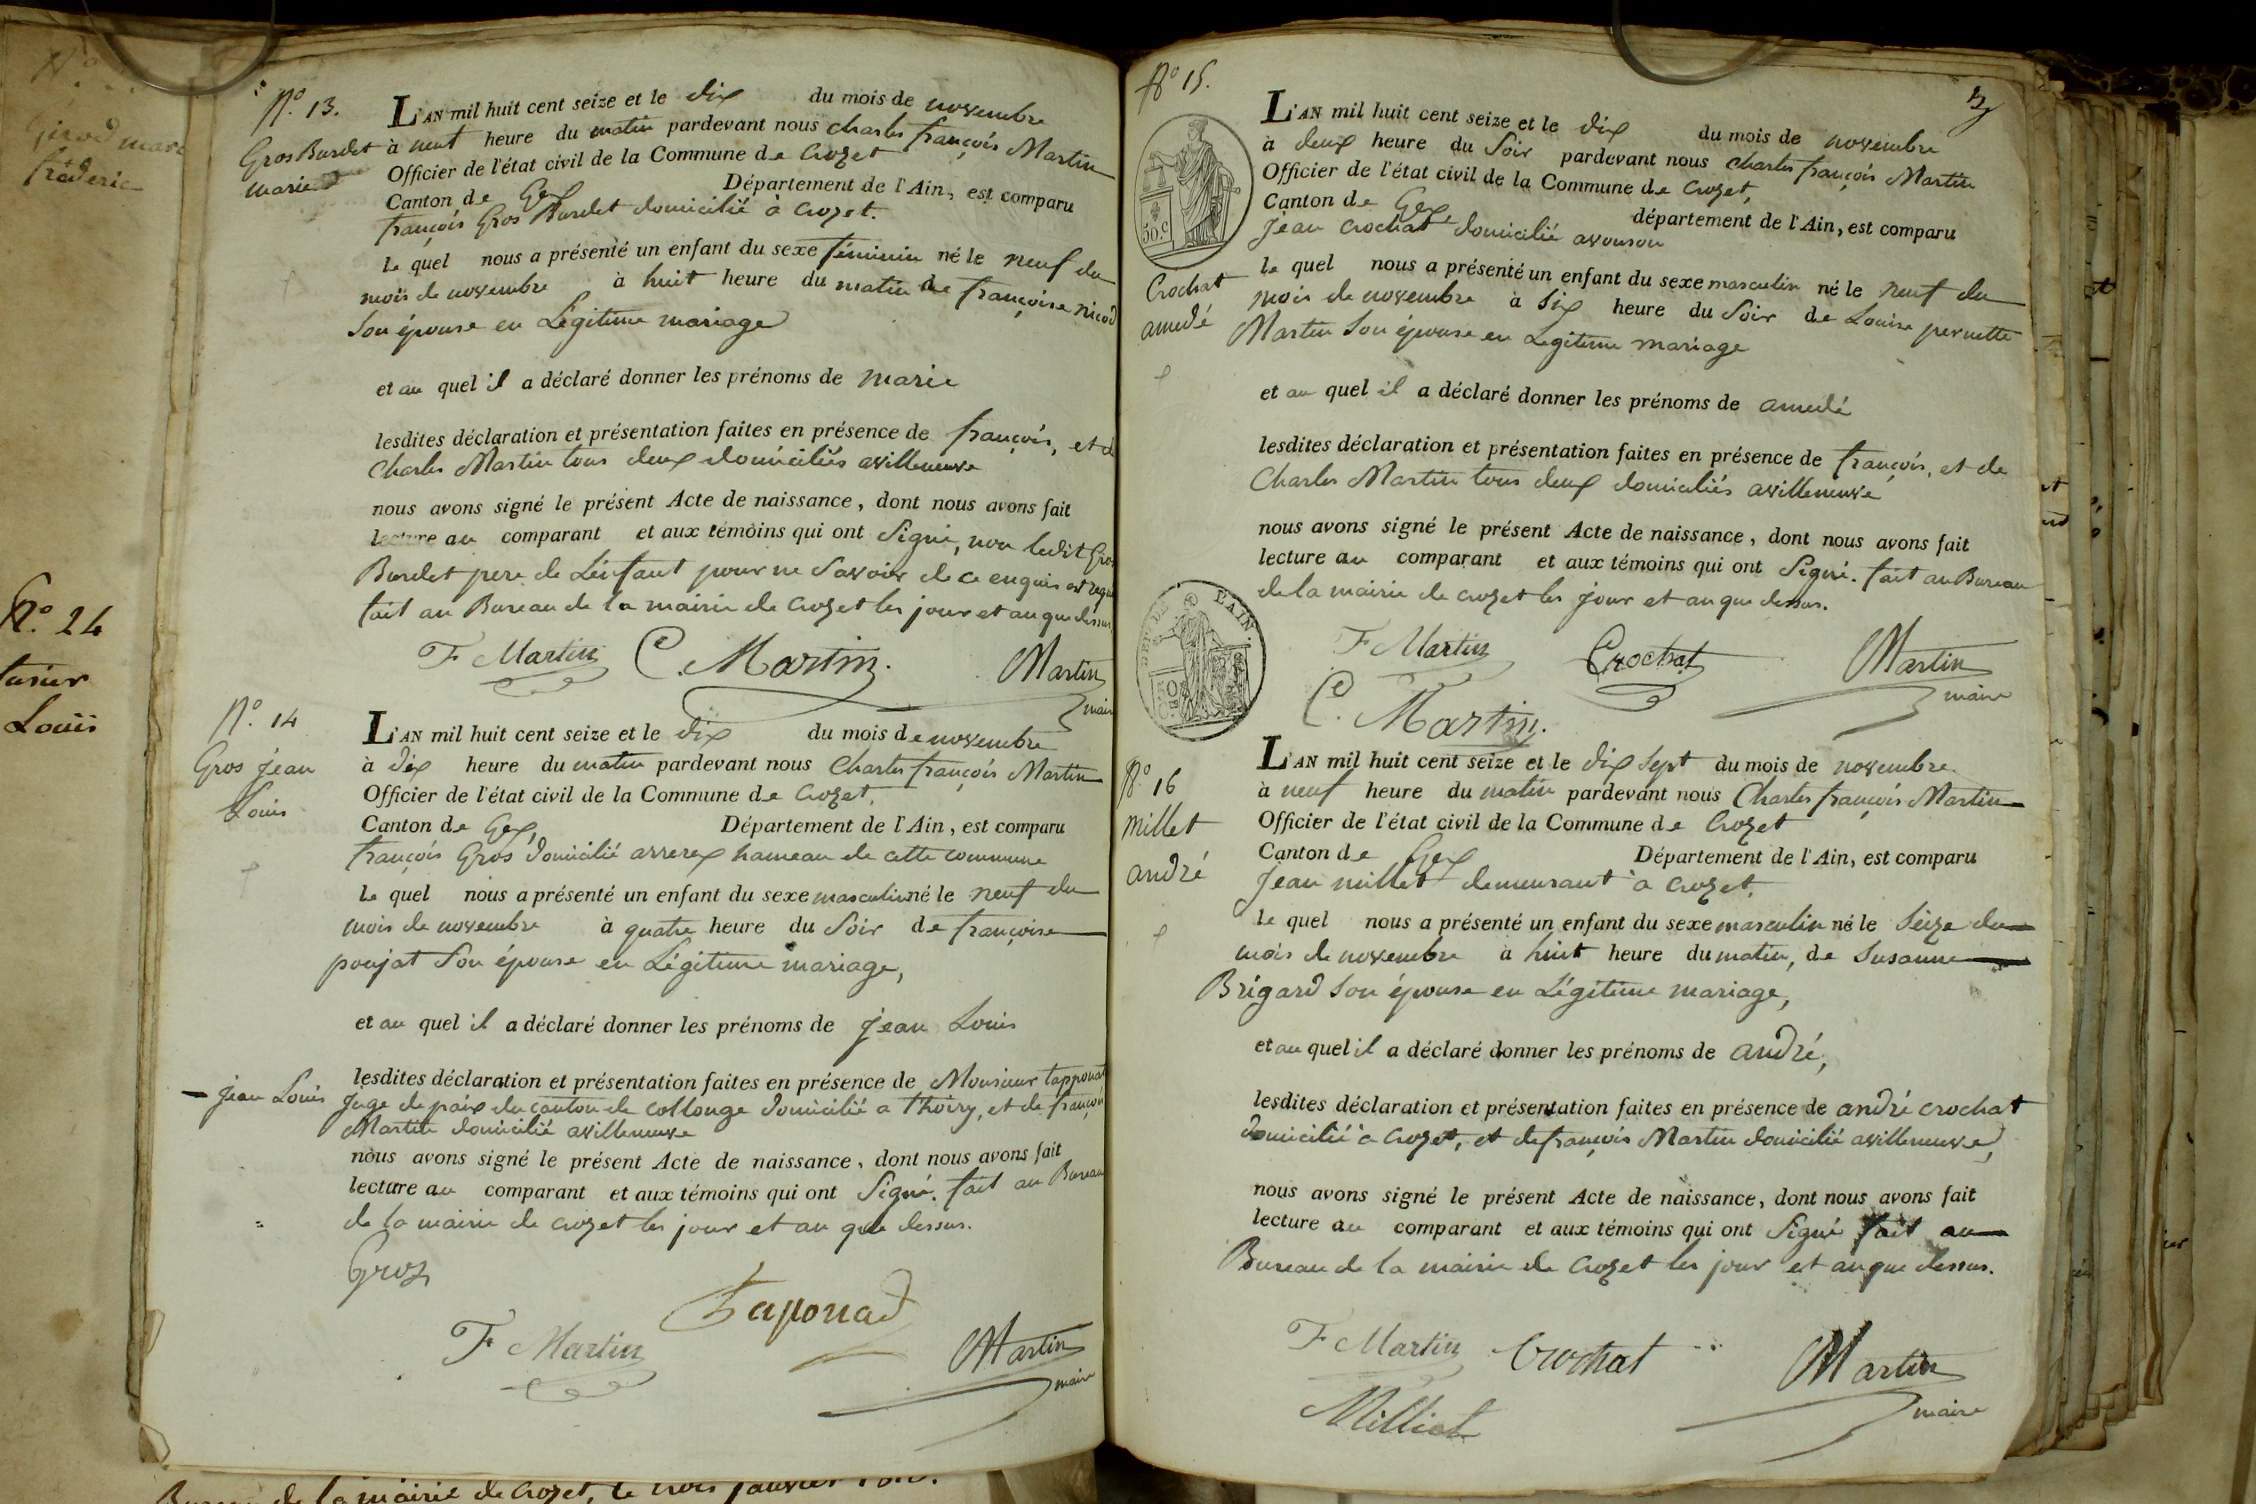 Girod marc
fréderic
N.º 24
Louïs
N.º 13.
Gros Burdet
marie
L'AN mil huit cent seize et le dix du mois de novembre
à neuf heure du matin pardevant nous charles françois Martin
Officier de l'état civil de la Commune de Crozet
Canton de Gex Département de l'Ain, est comparu
françois Gros Burdet domicilié à Crozet.
le quel nous a présenté un enfant du sexe féminin né le neuf du
mois de novembre à huit heure du matin de françoise nicod
Son épouse en Légitime mariage
et au quel il a déclaré donner les prénoms de marie
lesdites déclaration et présentation faites en présence de françois, et d
Charles Martin tous deux domiciliés avilleneuve
nous avons signé le présent Acte de naissance, dont nous avons fait
lecture au comparant et aux témoins qui ont Signé, non ledit Gros
Burdet pere de L'enfant pour ne Savoir de ce enquis et requis
fait au Bureau de la mairie de Crozet les jour et an que dessus
F Martin C. Martin. Martin
maire
N.º 14
Gros jean
Louis
L'AN mil huit cent seize et le dix du mois de novembre
à dix heure du matin pardevant nous Charles françois Martin
Officier de l'état civil de la Commune de Crozet,
Canton de Gex, Département de l'Ain, est comparu
françois Gros domicilié averex hameau de cette commune
le quel nous a présenté un enfant du sexe masculin né le neuf du
mois de novembre à quatre heure du Soir de françoise
poujat Son épouse en Légitime mariage,
et au quel il a déclaré donner les prénoms de jean Louis
jean Louis
lesdites déclaration et présentation faites en présence de Monsieur tapponat
juge de paix du canton de Collonge domicilié a thoiry, et de françois
Martin domicilié avilleneuve
nous avons signé le présent Acte de naissance, dont nous avons fait
lecture au comparant et aux témoins qui ont Signé. fait au Bureau
de la mairie de Crozet les jour et an que dessus.
Gros
Tapouad
F Martin Martin
maire
Bureau de la mairie de Crozet, le trois janvier
Nº 15.
50.c
Crochat
amedé
DEP. DE L'AIN
L'AN mil huit cent seize et le dix du mois de novembre
à deux heure du Soir pardevant nous charles françois Martin
Officier de l'état civil de la Commune de Crozet,
Canton de Gex, département de l'Ain, est comparu
jean crochat domicilié avouson
le quel nous a présenté un enfant du sexe masculin né le neuf du
mois de novembre à Six heure du Soir de Louise pernette
Martin Son épouse en Légitime mariage
et au quel il a déclaré donner les prénoms de amedé
lesdites déclaration et présentation faites en présence de françois, et de
Charles Martin tous deux domiciliés avilleneuve
nous avons signé le présent Acte de naissance, dont nous avons fait
lecture au comparant et aux témoins qui ont Signé. fait au Bureau
de la mairie de crozet les jour et an que dessus.
F Martin Crochat Martin
maire
C. Martin.
Nº 16
millet
andré
L'AN mil huit cent seize et le dix Sept du mois de novembre
à neuf heure du matin pardevant nous Charles françois Martin
Officier de l'état civil de la Commune de Crozet
Canton de Gex Département de l'Ain, est comparu
jean millet demeurant à Crozet,
le quel nous a présenté un enfant du sexe masculin né le Seize du
mois de novembre à huit heure du matin, de Susanne
Brigard Son épouse en Légitime mariage,
et au quel il a déclaré donner les prénoms de andré,
lesdites déclaration et présentation faites en présence de andré crochat
domicilié à Crozet, et de françois Martin domicilié avilleneuve,
nous avons signé le présent Acte de naissance, dont nous avons fait
lecture au comparant et aux témoins qui ont Signé fait au
Bureau de la mairie de Crozet les jour et an que dessus.
F Martin Crochat Martin
maire
Milliet